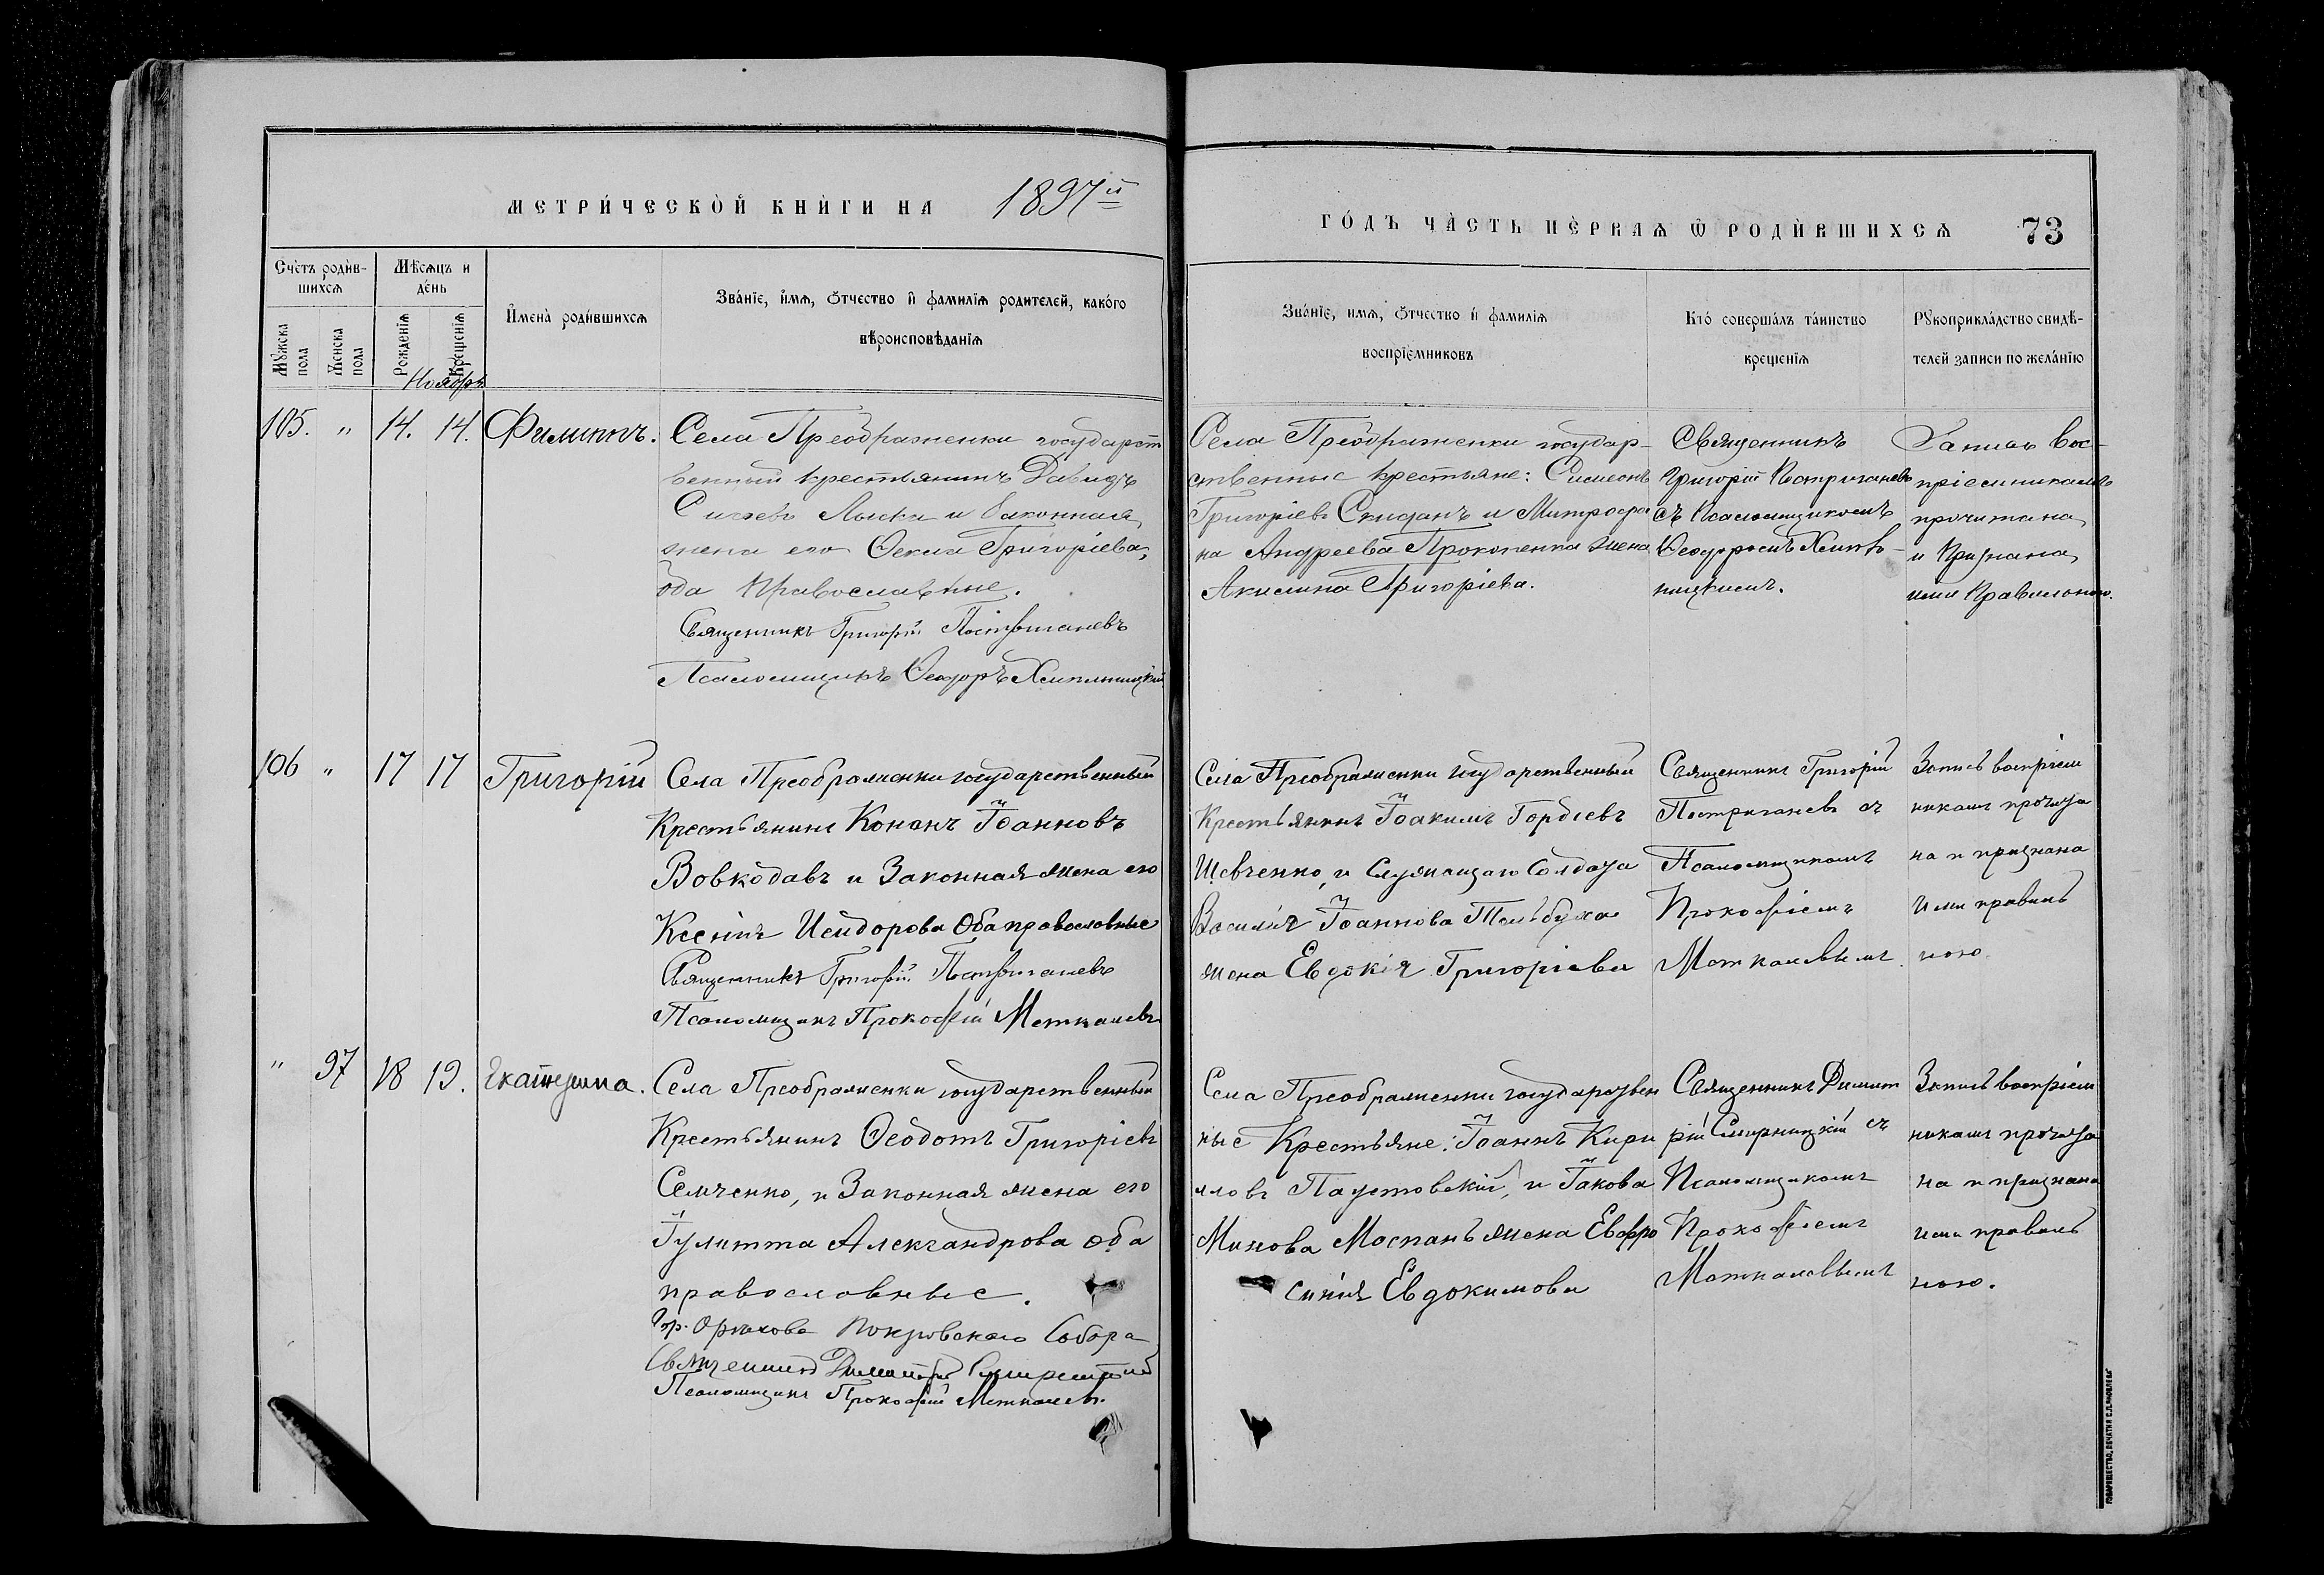 МЕТРИ́ЧЕСКОЙ КНИ́ГИ НА 1897й
ГО́ДЪ ЧА́СТЬ ПЕ́РВАѦ Ѡ РОДИ́ВШИХСѦ 73
Сче́тъ роди́в-
шихсѧ
Мѣ́сѧцъ и
де́нь
Мꙋжска
пола
Женска
пола
Рожденїѧ
Крещенїѧ
И҆мена̀ роди́вшихсѧ
Зва́нїе, и҆́мѧ, ѻ҆́тчество и҆ фами́лїѧ родителей, како́го
вѣроисповѣ́данїѧ
Зва́нїе, имѧ, ѻ҆́тчество и҆ фами́лїѧ
воспрїе́мниковъ
Кто̀ соверша́лъ та́инство
креще́нїѧ
Рꙋкоприкла́дство свидѣ́-
телей записи по жела́нїю
Ноябрь
105. " 14. 14. Филиппъ.
Села Преображенки государст
венный крестьянинъ Давидъ
Лыска и законная
жена его Ѳекла Григоріева,
оба Православные.
Священникъ Григорій Пострига невъ
Псаломщикъ Ѳеодоръ Хмельницкій
Села Преображенки государ-
ственные крестьяне: Симеонъ
Григоріевъ Скиданъ и Митрофа
на Андреева Прокопенка жена
Акилина Григоріева.
Священникъ
Григорій Постриганевъ
съ Псаломщикомъ
Ѳеодоромъ Хмель-
ницкимъ.
Запись вос-
пріемникамъ
прочитана
и признана
ими правильною.
106 " 17 17 Григорій
Села Преображенки государственный
Крестьянинъ Кононъ Іоанновъ
Вовкодавъ и Законная жена его
Ксенія Исидорова Оба православные
Священникъ Григорій Постриганевъ
Псаломщикъ Прокофій Моткалевъ
Села Преображенки государственный
Крестьянинъ Іоакимъ Гордіевъ
Шевченко, и служащаго Солдата
Василія Іоаннова жена Евдокія Григоріева
Священникъ Григорій
Постриганевъ съ
Псаломщикомъ
Прокофіемъ
Моткалевымъ
Запись воспріем
никамъ прочита
на и признана
ими правиль
ною.
" 97 18 19. Екатерина.
Села Преображенки государственный
Крестьянинъ Ѳеодотъ Григоріевъ
Семченко, и Законная жена его
Іулитта Александрова оба
православные.
Гр. Орѣхова Покровскаго Собора
Священникъ Димитрій Смирницкій
Псаломщикъ Прокофій Моткалевъ.
Села Преображенки государствен
ные Крестьяне: Іоаннъ Кири
ловъ Паустовскій, и Іакова
Минова Моспанъ жена Евфро
синія Евдокимова
Священникъ Димит
рій Смирницкій съ
Псаломщикомъ
Прокофіемъ
Моткалевымъ
Запись воспріем
никамъ прочита
на и признана
ими правиль
ною.
ТОВАРИЩЕСТВО „ПЕЧАТНЯ С.П.ЯКОВЛЕВА“